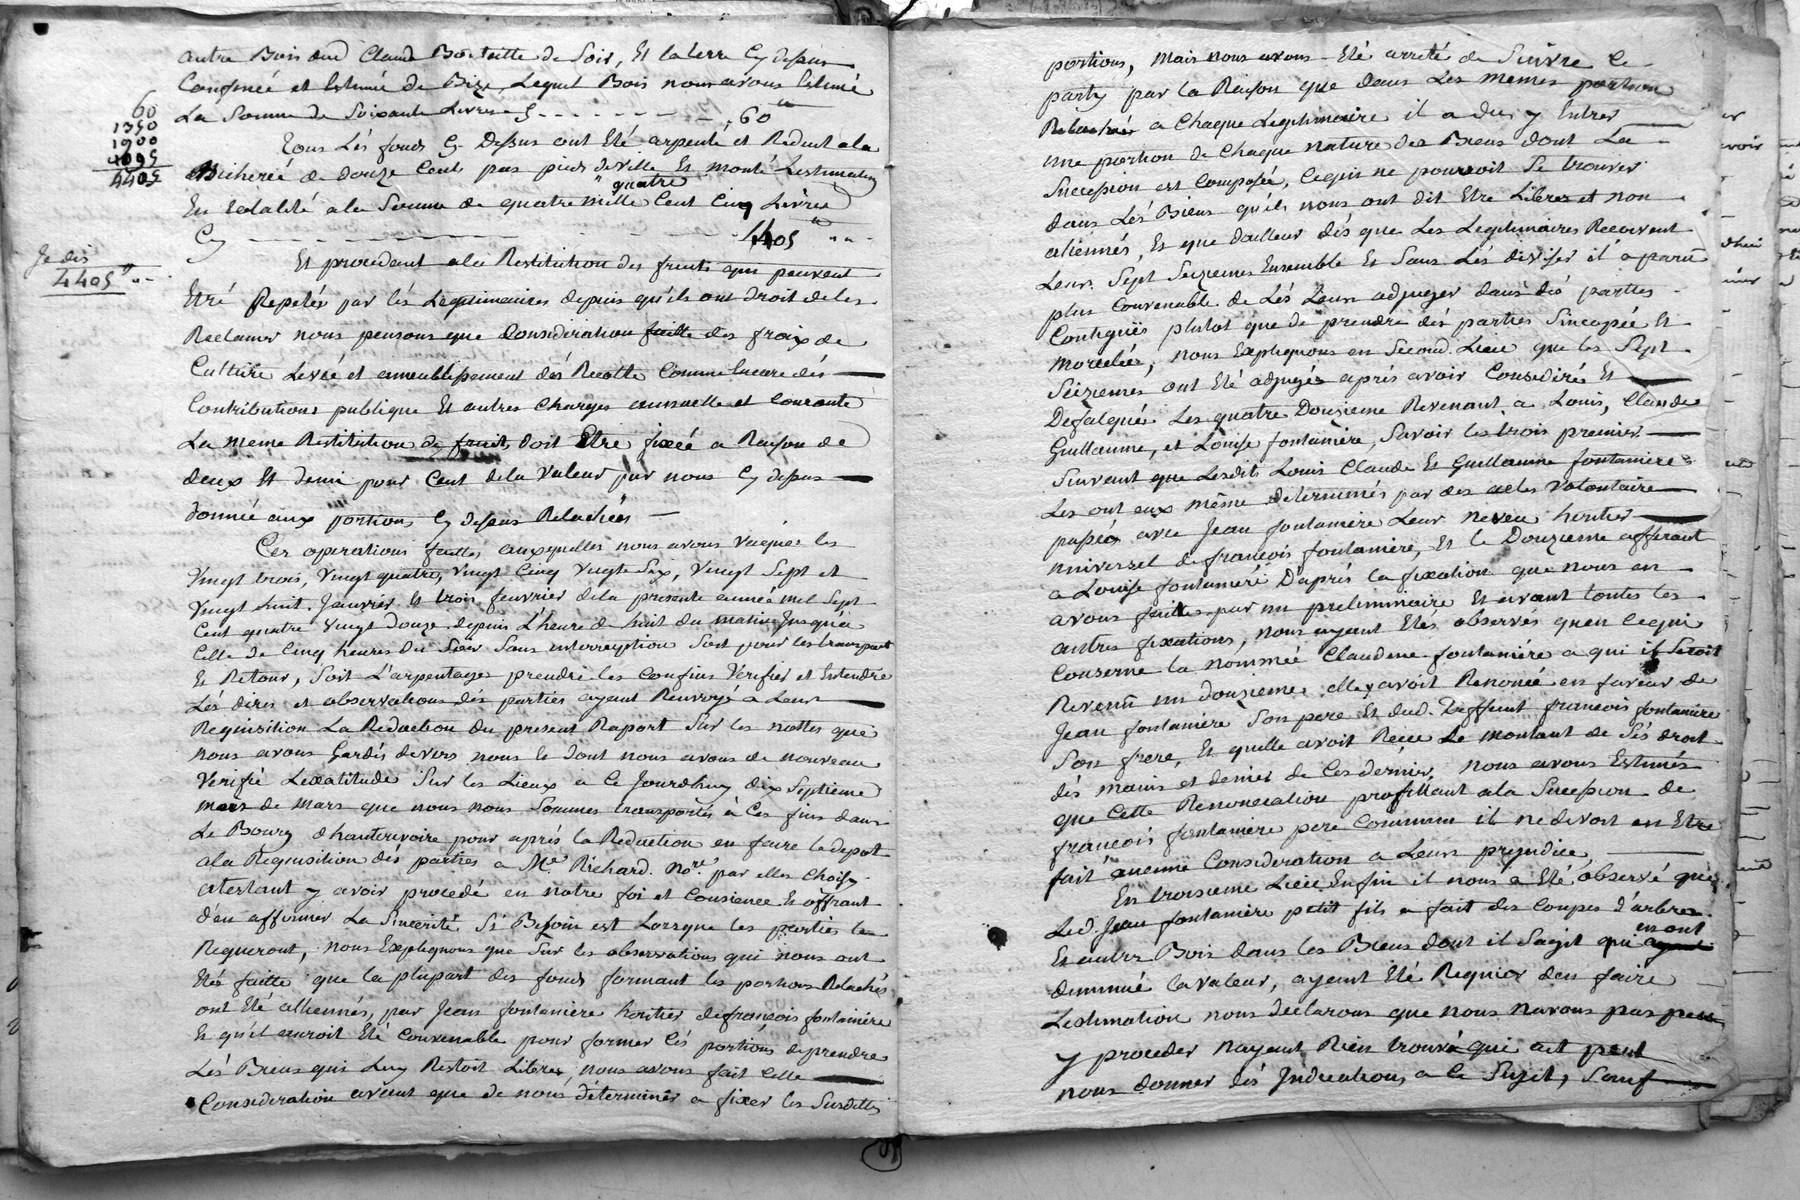 autre Bois dud Claude Bontulle de Soir, Et la terre Cy dessus
Confinée et Estimée de Bize, Lequel Bois nous avons Estimé
La Somme de Soixante Livres Cy - - - - - - - 60
60
1350
1900
4405
Tous Lés fonds Cy Dessus ont Eté arpenté et Reduit a la
Bicherée de douze Cents pas pieds de ville Et monté Lestimation
quatre
En totalité a la Somme de quatre mille Cent Cinq Livres
Cy - - - - - - - - 4405
Je dis
4405
Et procedant a la Restitution des fruits qui peuvent
Etré Repetés par lés Legitimaires depuis qu'ils ont droit de les
Reclamer nous pensons que Considération faitte des fraix de
Culture Levée et ameublissement dés Recolte Comme Encore dés
Contributions publique Et autres Charges annuelle et Courante
La meme Restitution de fruits doit Etre fixeé a Raison de
deux Et demi pour Cent de la valeur par nous Cy dessus
donnée aux portions Cy dessus Relachées
Ces operations faittes auxquelles nous avons vaquées les
vingt trois, vingt quatre, vingt Cinq vingt Six, vingt Sept et
vingt huit Janvier et trois fevrier de la presente année mil Sept
Cent quatre vingt douze depuis L'heure de huit du matin Jusqu'a
Celle de Cinq heures du Soir Sans interruption Soit pour les transport
Et Retour, Soit L'arpentage prendre les Confins Verifier et Entendre
Lés dires et observations dés parties ayant Renvoyé a Leur
Requisition La Redaction du present Raport Sur les nottes que
nous avons Gardés devers nous Et dont nous avons de nouveau
Verifié Lexatitude Sur les Lieux a Ce Jourdhuy dix Septieme
mars de mars que nous nous Sommes transportés à Ces fins dans
Le Bourg dhauterivoire pour aprés la Redaction en faire le depot
a la Requisition dés parties a Me. Richard. Nore. par elles Choisy
atestant y avoir procedé en notre foi et Consience Et offrant
d'en affirmer La Sincerité Si Besoin est Lorsque les parties le
Requeront, nous Expliquons que Sur les observations qui nous ont
Etés faitte que la plupart des fonds formant les portions Relachés
ont Eté alliennés, par Jean fontaniere heritier de françois fontaniére
Et qu'il auroit Eté Convenable pour former Lés portions de prendre
Lés Biens qui Luy Restoit Libres, nous avons fait Cette
Consideration avant que de nous déterminer a fixer les Susdittes
portions, mais nous avons Eté arreté de Suivre Ce
party par la Raison que dans Les memes portions
Relachées a Chaque Legitimaire il a du y Entrer
une portion de Chaque nature des Biens dont La
Succession est Composée, Cequi ne pouvoit Se trouver
dans Lés Biens qu'ils nous ont dit Etre Libres et non
aliennés, Et que dailleur dés que Les Legitimaires Recoivent
Leurs Sept Seiziemes Ensemble Et Sans Lés diviser il a paru
plus Convenable de Lés Leur adjuger dans dés parties
Contiguës plutot que de prendre dés parties Sincopée Et
Morcelées, nous Expliquons en Second Lieu que les Sept
Seiziemes ont Eté adjugés aprés avoir Considérés Et
Defalqué Les quatre Douzieme Revenant a Louis, Claude
Guillaume, et Louise fontaniére, Savoir les trois premier
Suivant que Lesdits Louis Claude Et Guillaume fontaniere
Les ont eux même determinés par des actes volontaire
passés avec Jean fontaniére Leur Neveu heritier
universel de françois fontaniére, Et le Douzieme afferant
a Louise fontaniére D'aprés la fixation que nous en
avons faittes par un preliminaire Et avant toutes les
autres fixations, nous ayant Etés observés quen Cequi
Conserne la nommée Claudine fontaniére a qui il Seroit
Revenû un douzieme, elle y avoit Renoncé en faveur de
Jean fontaniere Son pere Et dud. Deffunt francois fontaniere
Son frere, Et quelle avoit Recu Le montant de Sés droit
dés mains et denier de Ces dernier, nous avons Estimés
que Cette Renonciation profittant a la Sucession de
francois fontaniere pere Commun il ne devoit en Etre
fait aucune Consideration a Leur prejudice
En troisieme Lieu Enfin il nous a Eté observé que
Led. Jean fontaniére petit fils a fait des Coupes d'arbres
en ont
Et autre Bois dans les Biens dont il Sagit qui
diminué la valeur, ayant Eté Requier den faire
Lestimation nous declarons que nous navons pas peu
y proceder Nayant Rien trouvé qui ait peut
nous donner dés Indications a Ce Sujet, Sauf